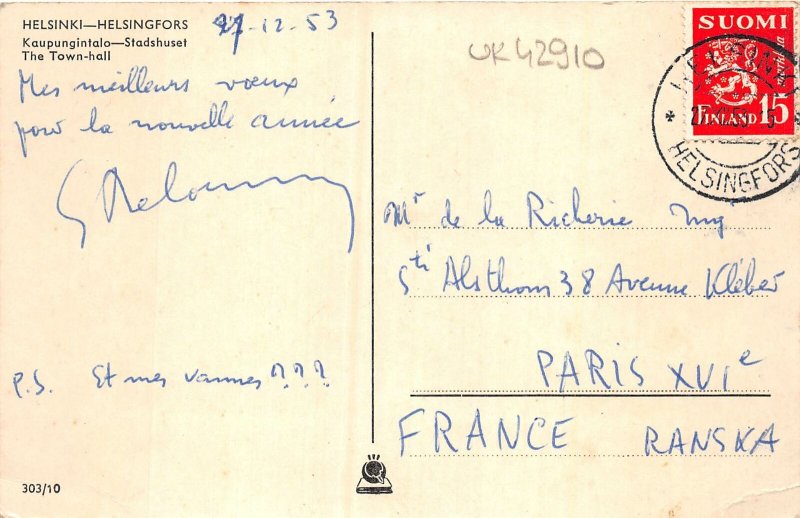 HELSINKI—HELSINGFORS
Kaupungintalo—Stadshuset
The Town-hall
27-12-53
Mes meilleurs vœux
pour la nouvelle année
P.S. Et mes vannes???
303/10
UK42910
SUOMI
FINLAND 15
HELSINKI
HELSINGFORS
Mr de la Richerie Ing
Sté Alsthom 38 Avenue Kléber
PARIS XVIe
FRANCE RANSKA